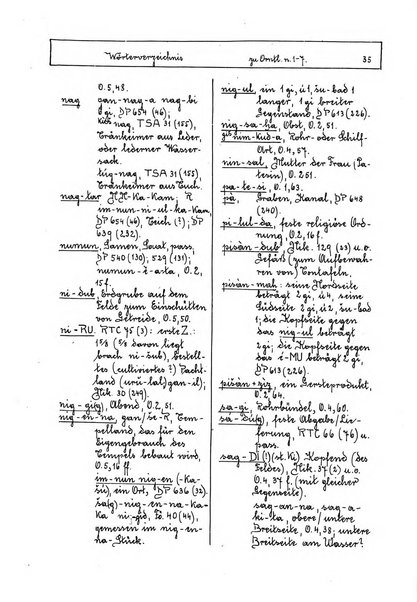 Wörterverzeichnis zu Orntl. n. 1-7. 35
O. 5, 48.
nag gan-nag-a nag-bi
6 gi, DP 654 (46);
nag, TSA 31 (155),
Tränkeimer aus Leder,
oder lederner Wasser-
sack.
túg-nag, TSA 31 (155),
Tränkeimer aus Tuch.
nag-tar H. H-Ka-Kam; R
im-nun-ni-ul-ka-Kam,
DP 654 (46), Teich (?); DP
639 (232).
numun, Samen, Saat, pass.
DP 540 (130); 529 (131);
numun-i-a-ta, O. 2,
15 f.
ni-dub Erdgrube auf dem
Felde zum Einschütten
von Getreide, O. 5, 50.
ni-RU. RTC 75 (3): erste Z.:
(5/8 davon liegt
brach ni-šub), bestell-
tes (cultiviertes ?) Pacht-
land (uru-lal)gan-il);
Hlk. 30 (249).
nig-gi(g), Abend, O. 2, 51.
nig-en-na, gan/še-R, Tem-
pelland, das für den
Eigengebrauch des
Tempels bebaut wird,
O. 5, 16 ff.
im-nun nig-en (-Ka-
šú), ein Ort, DP 636 (32).
sa(g)-nig-en-na-Ka-
Ka ni-gíd, Fö. 40 (44),
gemessen im nig-en-
na-Stück.
nig-ul, ein 1 gi, ú 1, šu-bad 1
langer, 1 gi breiter
Gegenstand, DP 613 (226).
nig-sa-ha, Obst, O. 2, 51.
giš nim-kud-a, Rohr- oder Schilf-
Ort, O. 4, 57.
nin-sal, Mutter der Frau (La-
terin), O. 2 51.
pa-te-si, O. 1, 63.
pa, Graben, Kanal, DP 648
(240).
pi-lul-da, feste religiöse Ord-
nung, O. 2, 16 f.
pisàn-dub, Hlk. 129 (23) u. o.
Gefäß (zum Aufbewah-
ren von) Tontafeln.
pisan-mah: seine Nordseite
beträgt 2 gi, ú 4, seine
Südseite 2 gi, ú 2, šu-bad
1; die Kopfseite gegen
das nig-ul beträgt
2 gi; die Kopfseite gegen
das é-MU beträgt 2 gi,
DP 613 (226).
pišàn-ziz, ein Gersteprodukt,
O. 2, 64.
sa-gi, Rohrbündel, O. 4, 60.
sá-du(g), feste Abgabe/Lie-
ferung, RTC 66 (76) u.
pass.
sag-DI (!) (st. Ki) Kopfend (des
Feldes), Hlk. 37 (2) u. o.
O. 4, 37 f. (mit gleicher
Gegenseite).
sag-an-na, sag-a
ki-ta, obere/untere
Breitseite, O. 4, 38; untere
Breitseite am Wasser?